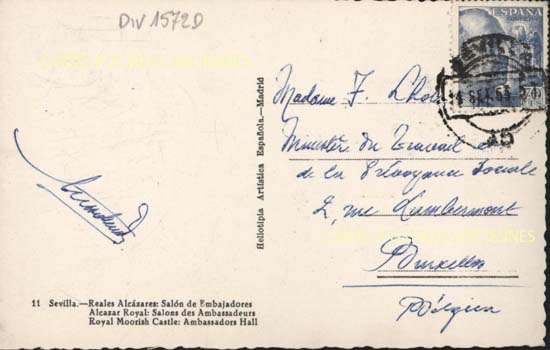 DIV 1572D
ESPAÑA
SEVILLA
Madame F.
Ministère du Travail et
de la Prévoyance Sociale
2, rue Lambermont
Bruxelles
Belgien
Heliotipia Artística Española.—Madrid
11 Sevilla.—Reales Alcázares: Salón de Embajadores
Alcasar Royal: Salons des Ambassadeurs
Royal Moorish Castle: Ambassadors Hall
CARTES POSTALES ANCIENNES
CARTES POSTALES ANCIENNES